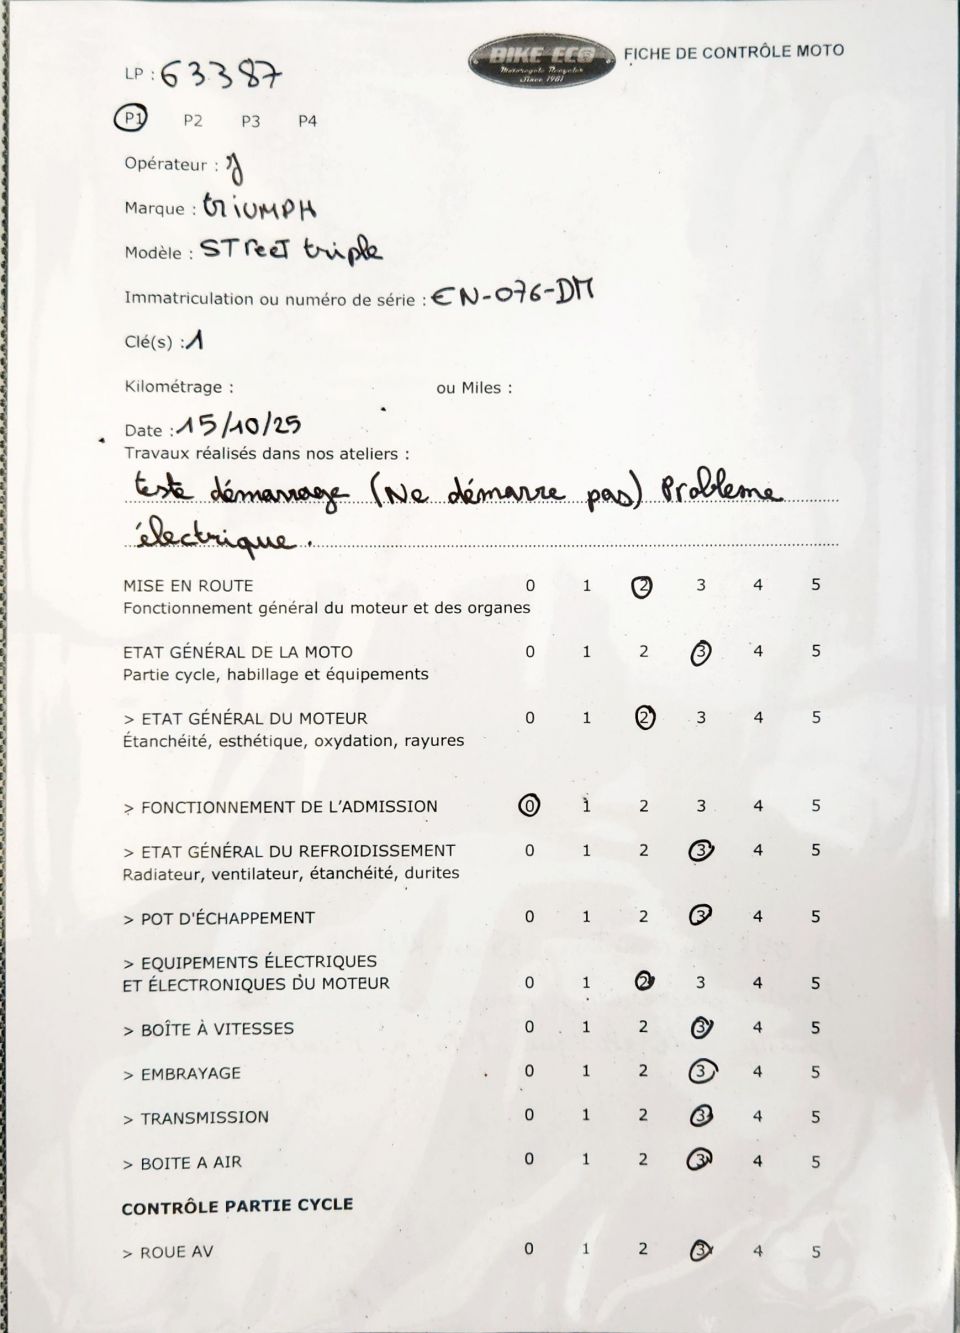 BIKE ECO
Motorcycle Recycler
Since 1981
FICHE DE CONTRÔLE MOTO
LP : 63387
P1 P2 P3 P4
Opérateur : J
Marque : triUMPH
Modèle : STreeT triple
Immatriculation ou numéro de série : EN-076-DM
Clé(s) : 1
Kilométrage : ou Miles :
Date : 15/10/25
Travaux réalisés dans nos ateliers :
teste démarrage (Ne démarre pas) Probleme
électrique.
MISE EN ROUTE 0 1 2 3 4 5
Fonctionnement général du moteur et des organes
ETAT GÉNÉRAL DE LA MOTO 0 1 2 3 4 5
Partie cycle, habillage et équipements
> ETAT GÉNÉRAL DU MOTEUR 0 1 2 3 4 5
Étanchéité, esthétique, oxydation, rayures
> FONCTIONNEMENT DE L'ADMISSION 0 1 2 3 4 5
> ETAT GÉNÉRAL DU REFROIDISSEMENT 0 1 2 3 4 5
Radiateur, ventilateur, étanchéité, durites
> POT D'ÉCHAPPEMENT 0 1 2 3 4 5
> EQUIPEMENTS ÉLECTRIQUES
ET ÉLECTRONIQUES DU MOTEUR 0 1 2 3 4 5
> BOÎTE À VITESSES 0 1 2 3 4 5
> EMBRAYAGE 0 1 2 3 4 5
> TRANSMISSION 0 1 2 3 4 5
> BOITE A AIR 0 1 2 3 4 5
CONTRÔLE PARTIE CYCLE
> ROUE AV 0 1 2 3 4 5